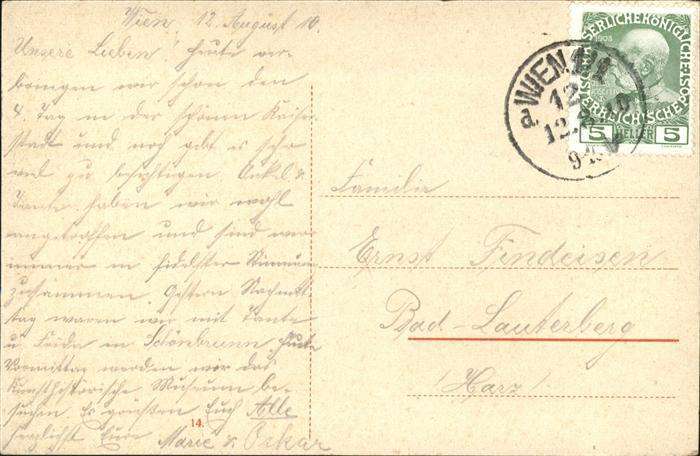 Wien, 12. August 10.
Unsere Lieben! Heute ver-
bringen wir schon den
4. Tag in der schönen Kaiser-
stadt und noch gibt es sehr
viel zu besichtigen. Onkel u.
Tante haben wir wohl
angetroffen und sind wir
immer in fidelster Stimmung
zusammen. Gestern Nachmit-
tag waren wir mit Tante
u. in Schönbrunn, heute
Vormittag werden wir das
Kunsthistorische Museum be-
suchen. Es grüßen Euch Alle
herzlichst Eure Marie u. Oskar
14.
Familie
Ernst Findeisen
Bad-Lauterberg
Harz.
KAISERLICHE KÖNIGLICHE ÖSTERREICHISCHE POST
1908
5 HELLER 5
WIEN
12